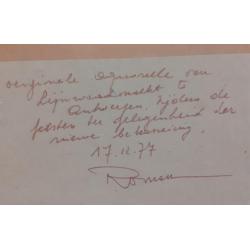 originale aquarelle van
Lijnwaadmarkt te
Antwerpen, tijdens de
feesten ter gelegenheid der
nieuwe bekasseiing.
17.12.77